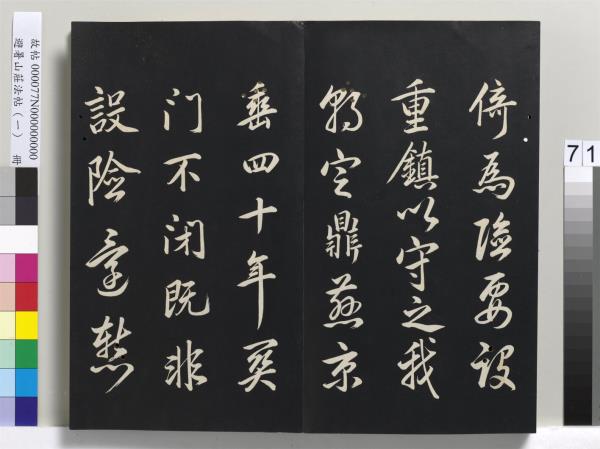 倚為險要設
重鎮以守之我
朝定鼎燕京
垂四十年關
門不閉既非
設險還慙
故帖 000077N000000000
避暑山莊法帖（一） 冊
71